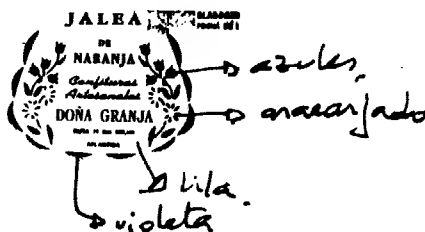 JALEA
DE
NARANJA
Confituras
Artesanales
DOÑA GRANJA
azules.
anaranjado
lila.
violeta